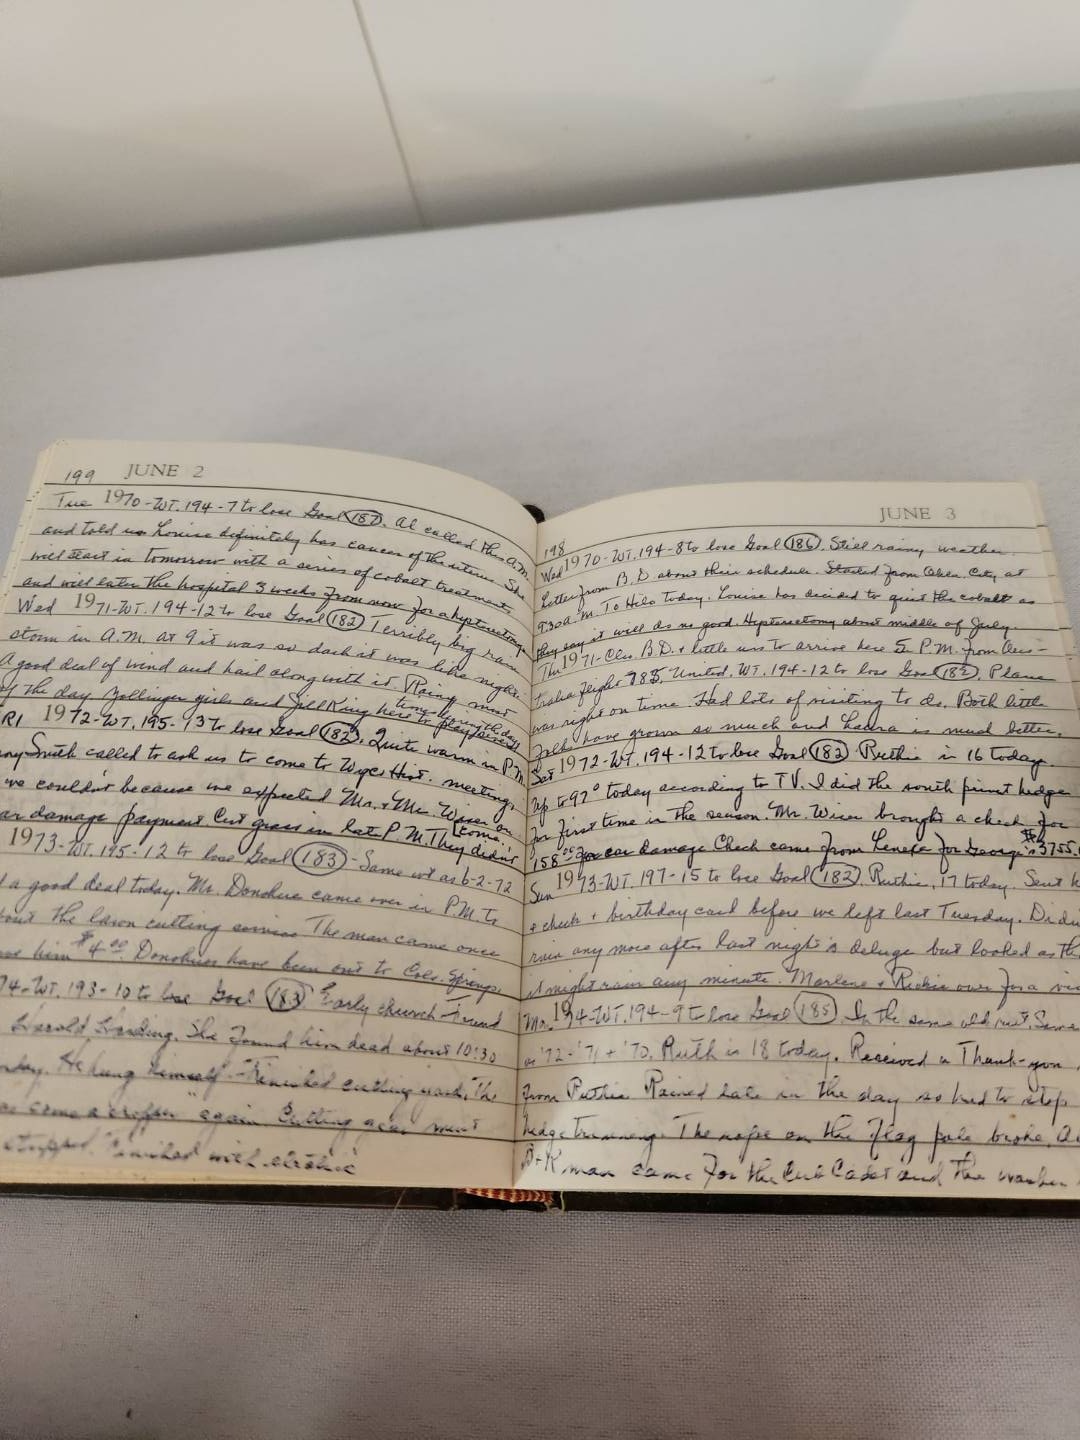 199 JUNE 2
Tue 1970-WT. 194-7 to lose Goal (187). Al called this A.M.
and told us Louise definitely has cancer of the uterus. She
will start in tomorrow with a series of cobalt treatments
and will enter the hospital 3 weeks from now for a hysterectomy.
Wed 1971-WT. 194-12 to lose Goal (182) Terribly big rain
storm in A.M. at 9 it was so dark it was like night.
A good deal of wind and hail along with it. Rainy most
time during the day
of the day. Zollinger girls and Jill King here to play
RI 1972-WT. 195-13 to lose Goal (182). Quite warm in P.M.
Smith called to ask us to come to Wyco Hist. meeting,
we couldn't because we expected Mr. + Mrs. Wiser on
car damage payment. Cut grass in late P.M. They didn't
come.
1973-WT. 195-12 to lose Goal (183)-Same wt as 6-2-72
a good deal today. Mr. Donohue came over in P.M. to
about the lawn cutting service The man came once
him $4.00. Donohues have been out to Colo. Springs.
74-WT. 193-10 to lose Goal (183) Early church-Friend
Harold Harding. She found him dead about 10:30
He hung himself-Finished cutting yard, The
again Cutting gear went
Finished with electric
JUNE 3
198
Wed 1970-WT. 194-8 to lose Goal (186). Still rainy weather.
Letter from B.D about their schedule. Started from Okla. City at
930 A.M. To Hilo today. Louise has decided to quit the cobalt as
they say it will do no good. Hysterectomy about middle of July.
Thu 1971-Cleo B.D. + little uns to arrive here 5 P.M. from Aus-
tralia flight 785, United. WT. 194-12 to lose Goal (182). Plane
was right on time Had lots of visiting to do. Both little
folks have grown so much and Laura is much better.
Sat 1972-WT. 194-12 to lose Goal (182) Ruthie is 16 today.
Up to 92° today according to TV. I did the south privet hedge
for first time in the season. Mr. Wiser brought a check for
158.00 for car damage Check came from Lenexa for George's $3755.
Sun 1973-WT. 197-15 to lose Goal (182). Ruthie, 17 today. Sent
+ check + birthday card before we left last Tuesday. Didn
rain any more after last night's deluge but looked as th
it might rain any minute. Marlene + Richie over for a vi
Mon. 1974-WT. 194-9 to lose Goal (185). In the same old rut. Same
as '72-'71 + '70. Ruth is 18 today. Received a Thank-you
from Ruthie Rained late in the day so had to stop
hedge trimming. The rope on the flag pole broke. A
B+K man came for the Cub Cadet and the washer